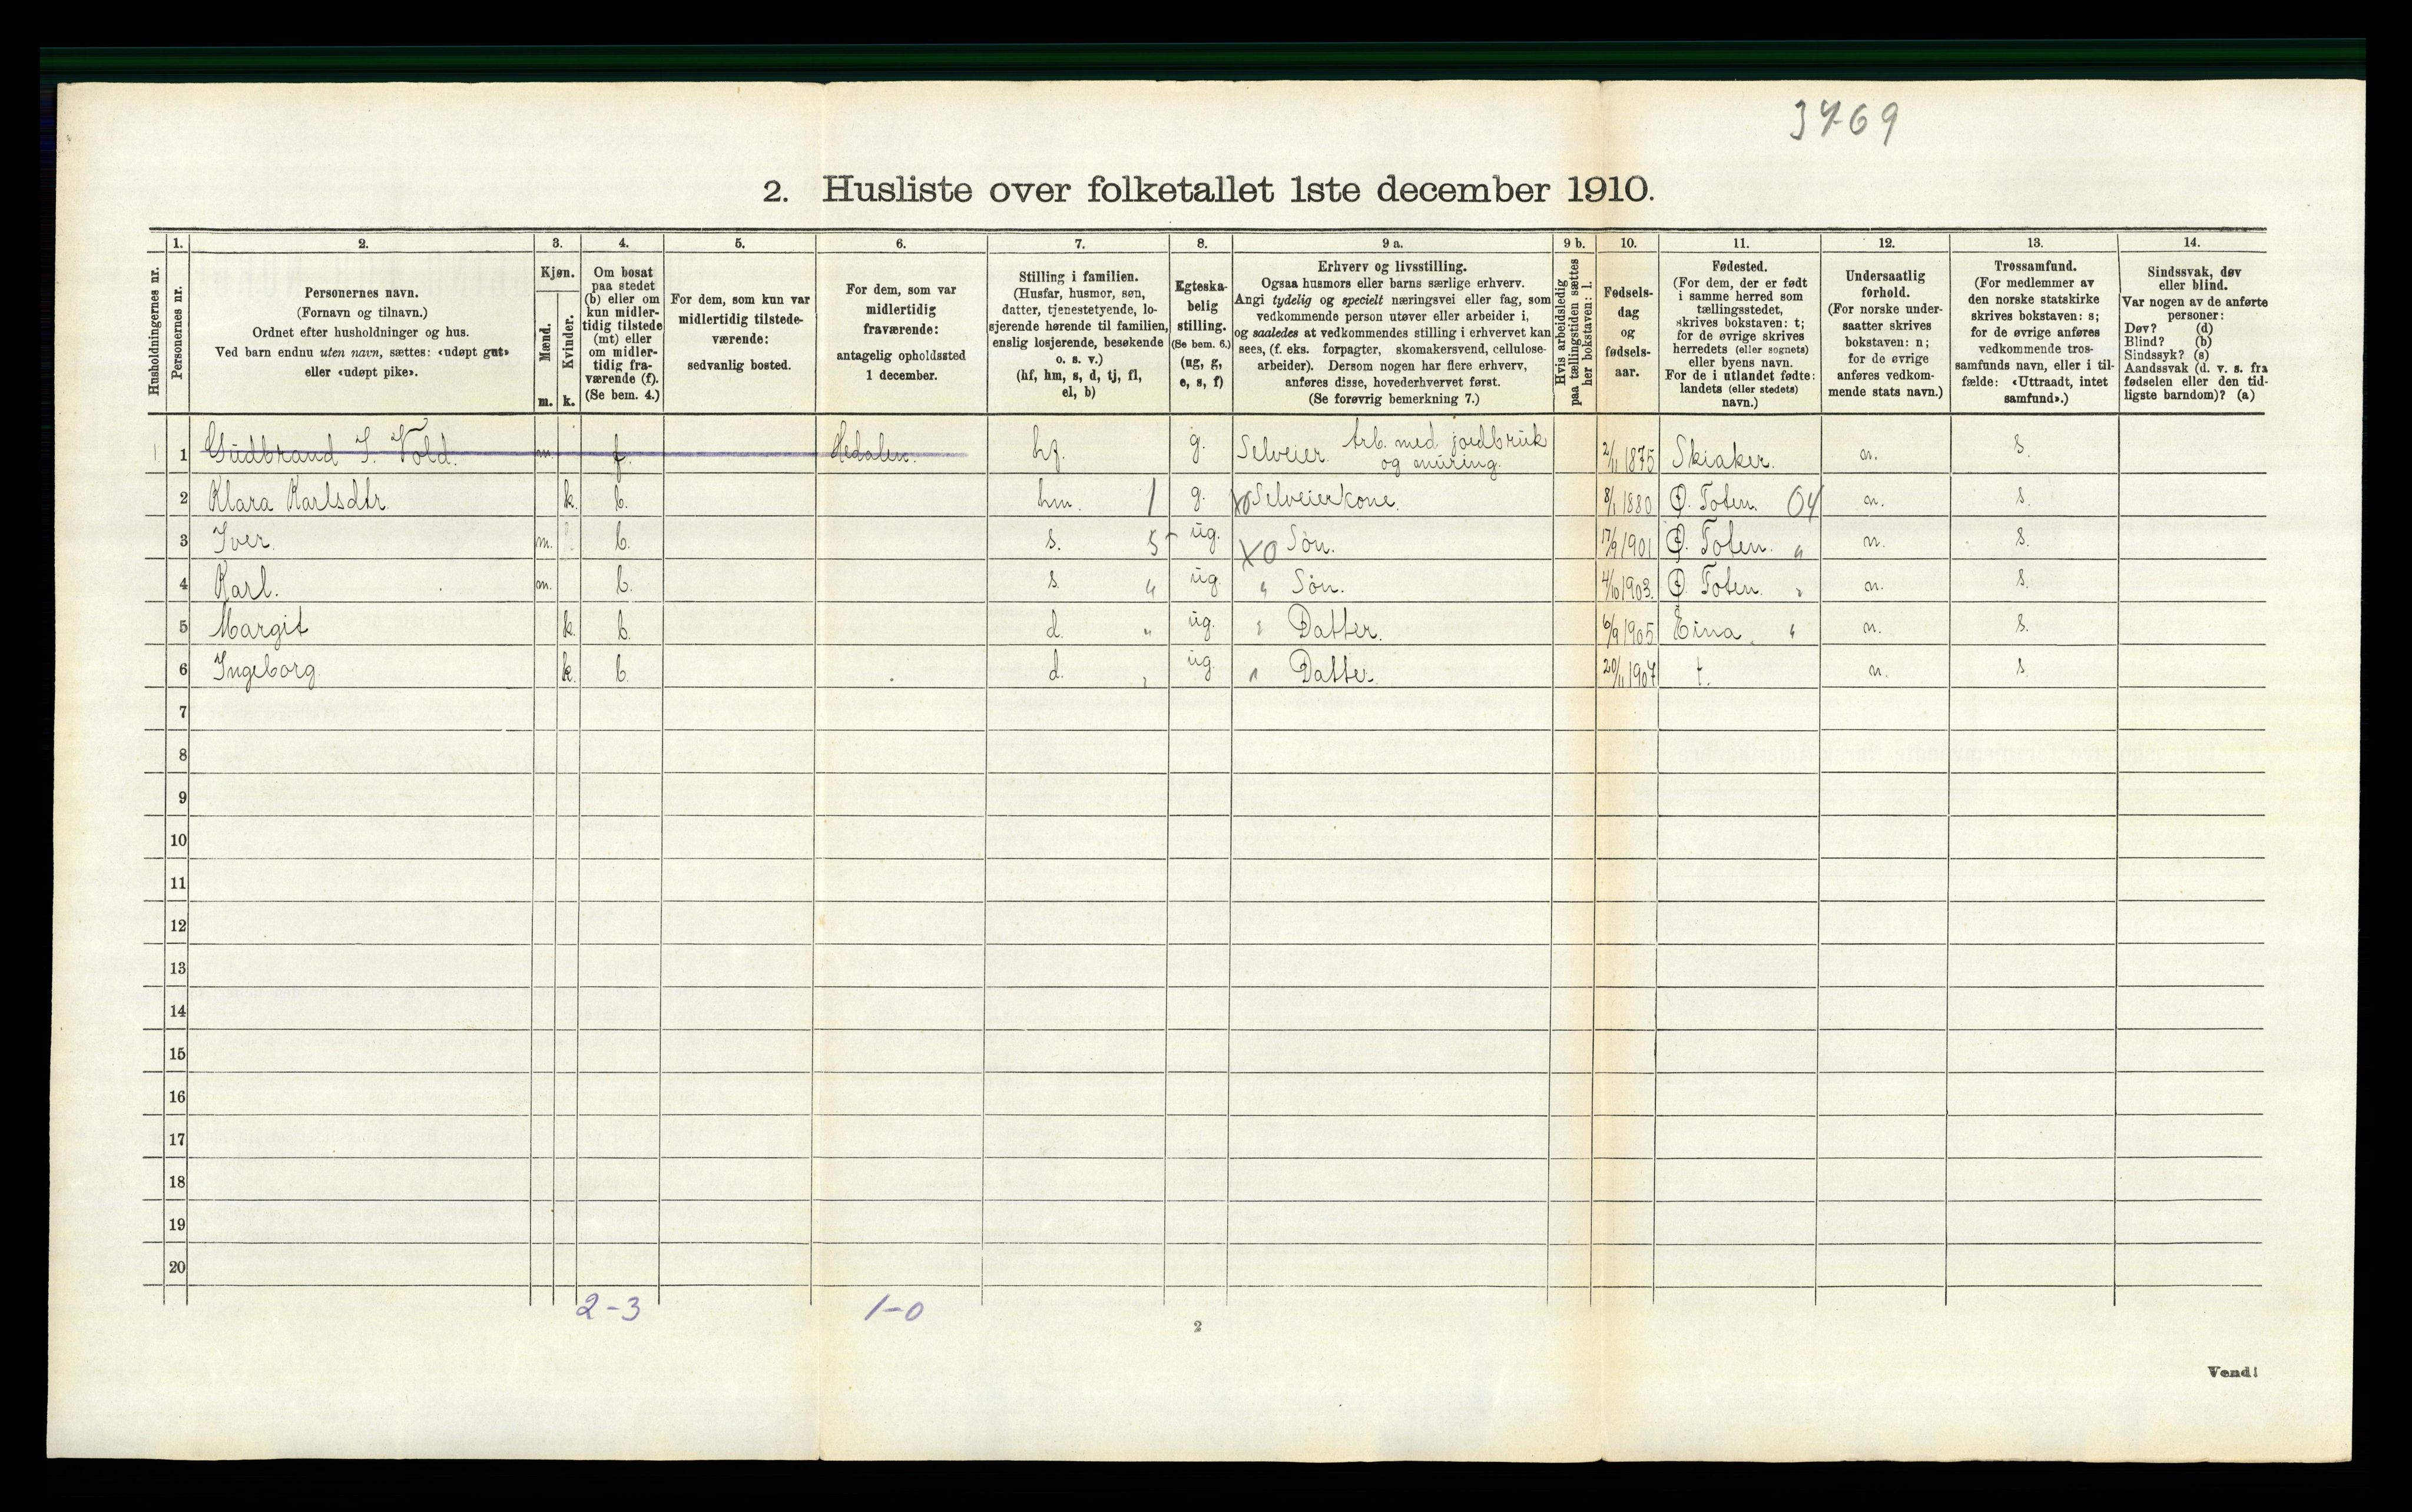 3769
2. Husliste over folketallet 1ste december 1910.
1. 2. 3. 4. 5. 6. 7. 8. 9 a. 9 b. 10. 11. 12. 13. 14.
Husholdningernes nr.
Personernes nr.
Personernes navn.
(Fornavn og tilnavn.)
Ordnet efter husholdninger og hus.
Ved barn endnu uten navn, sættes: «udøpt gut»
eller «udøpt pike».
Kjøn.
Mænd.
Kvinder.
m. k.
Om bosat
paa stedet
(b) eller om
kun midler-
tidig tilstede
(mt) eller
om midler-
tidig fra-
værende (f).
(Se bem. 4.)
For dem, som kun var
midlertidig tilstede-
værende:
sedvanlig bosted.
For dem, som var
midlertidig
fraværende:
antagelig opholdssted
1 december.
Stilling i familien.
(Husfar, husmor, søn,
datter, tjenestetyende, lo-
sjerende hørende til familien,
enslig losjerende, besøkende
o. s. v.)
(hf, hm, s, d, tj, fl,
el, b)
Egteska-
belig
stilling.
(Se bem. 6.)
(ug, g,
e, s, f)
Erhverv og livsstilling.
Ogsaa husmors eller barns særlige erhverv.
Angi tydelig og specielt næringsvei eller fag, som
vedkommende person utøver eller arbeider i,
og saaledes at vedkommendes stilling i erhvervet kan
sees, (f. eks. forpagter, skomakersvend, cellulose-
arbeider). Dersom nogen har flere erhverv,
anføres disse, hovederhvervet først.
(Se forøvrig bemerkning 7.)
Hvis arbeidsledig
paa tællingstiden sættes
her bokstaven: l.
Fødsels-
dag
og
fødsels-
aar.
Fødested.
(For dem, der er født
i samme herred som
tællingsstedet,
skrives bokstaven: t;
for de øvrige skrives
herredets (eller sognets)
eller byens navn.
For de i utlandet fødte:
landets (eller stedets)
navn.)
Undersaatlig
forhold.
(For norske under-
saatter skrives
bokstaven: n;
for de øvrige
anføres vedkom-
mende stats navn.)
Trossamfund.
(For medlemmer av
den norske statskirke
skrives bokstaven: s;
for de øvrige anføres
vedkommende tros-
samfunds navn, eller i til-
fælde: «Uttraadt, intet
samfund».)
Sindssvak, døv
eller blind.
Var nogen av de anførte
personer:
Døv? (d)
Blind? (b)
Sindssyk? (s)
Aandssvak (d. v. s. fra
fødselen eller den tid-
ligste barndom)? (a)
1 1 Gudbrand I. Vold. m. f. Hedalen. hf. g. Selveier. Arb. med jordbruk og muring. 2/11 1875 Skiaker. n. s.
2 Klara Karlsdtr. k. b. hm. 1 g. X0 Selveierkone. 8/1 1880 Ø. Toten. 04 n. s.
3 Iver. m. b. s. 5 ug. X0 Søn. 17/9 1901 Ø. Toten. " n. s.
4 Karl. m. b. s. " ug. " Søn. 4/10 1903. Ø. Toten. " n. s.
5 Margit k. b. d. " ug. " Datter. 6/9 1905 Eina. " n. s.
6 Ingeborg. k. b. d. " ug. " Datter. 20/11 1907 t. n. s.
7
8
9
10
11
12
13
14
15
16
17
18
19
20
2-3 1-0
2
Vend!